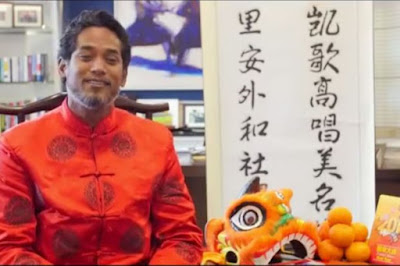 凯歌高唱美名
里安外和社